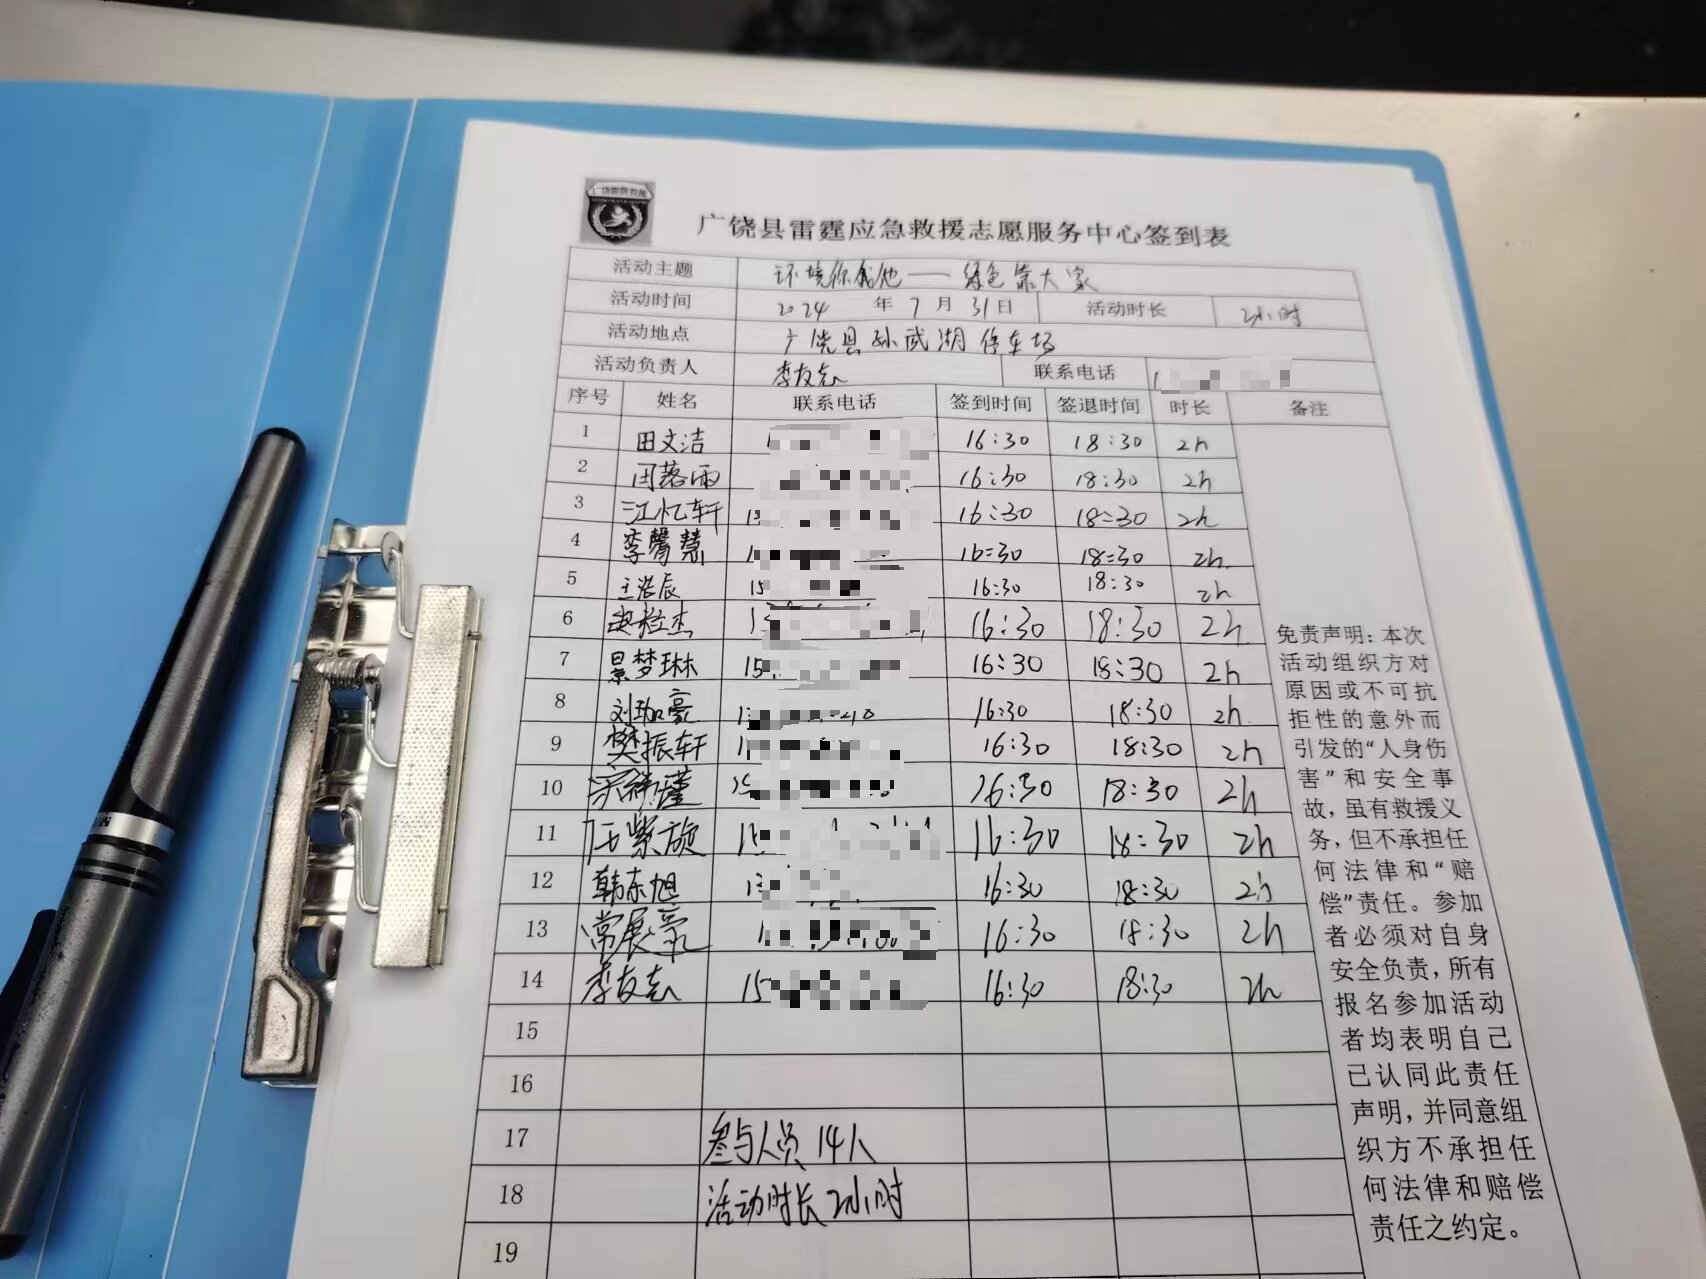 广饶县雷霆应急救援志愿服务中心签到表
活动主题 环境你我他——绿色靠大家
活动时间 2024 年 7 月 31 日 活动时长 2小时
活动地点 广饶县孙武湖停车场
活动负责人 李友志 联系电话
序号 姓名 联系电话 签到时间 签退时间 时长 备注
1 田文洁 1 16:30 18:30 2h
2 闫落雨 16:30 18:30 2h
3 江忆轩 15 16:30 18:30 2h
4 李馨慧 1 16:30 18:30 2h
5 王浩辰 15 16:30 18:30 2h
6 杰 13 16:30 18:30 2h
7 景梦琳 15 16:30 18:30 2h
8 刘珈豪 1 16:30 18:30 2h
9 樊振轩 1 16:30 18:30 2h
10 瑾 15 16:30 18:30 2h
11 紫旋 15 16:30 18:30 2h
12 韩东旭 13 16:30 18:30 2h
13 常展豪 1 16:30 18:30 2h
14 李友志 15 16:30 18:30 2h
15
16
17 参与人员 14人
18 活动时长 2小时
19
免责声明：本次
活动组织方对
原因或不可抗
拒性的意外而
引发的“人身伤
害”和安全事
故，虽有救援义
务，但不承担任
何法律和“赔
偿”责任。参加
者必须对自身
安全负责，所有
报名参加活动
者均表明自己
已认同此责任
声明，并同意组
织方不承担任
何法律和赔偿
责任之约定。